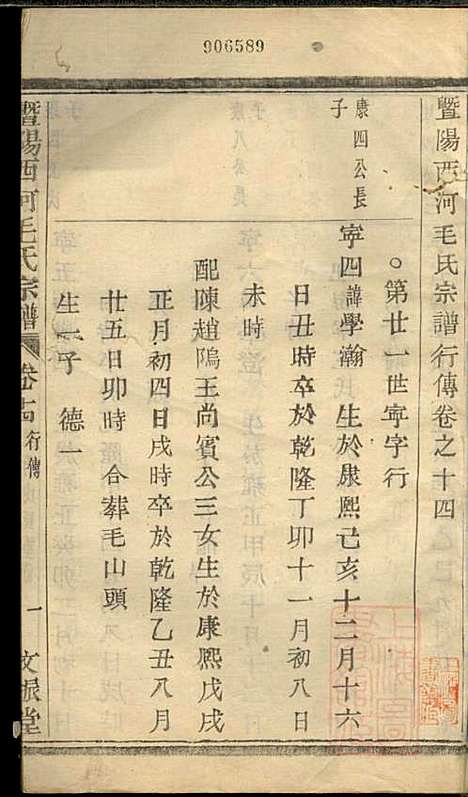 906589
暨陽西河毛氏宗譜行傳卷之十四
○第廿一世寧字行
康四公長子
寧四諱學瀚 生於康熙己亥十二月十六
日丑時卒於乾隆丁卯十一月初八日
未時
配陳趙隖王尚賓公三女生於康熙戊戌
正月初四日戌時卒於乾隆乙丑八月
廿五日卯時 合葬毛山頭
生一子 德一
暨陽西河毛氏宗譜 卷十四 行傳 一 文振堂